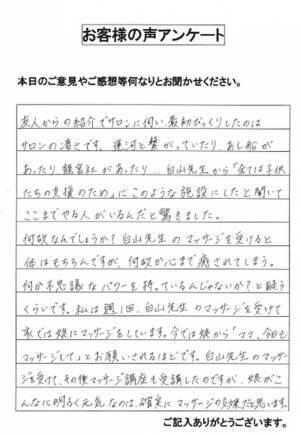 お客様の声アンケート
本日のご意見やご感想等何なりとお聞かせください。
友人からの紹介でサロンに伺い、最初びっくりしたのは
サロンの凄さです。運河と繋がっていたり、あし船が
あったり、龍宮社があったり...白山先生から「全ては子供
たちの支援のため」にこのような施設にしたと聞いて
ここまでやる人がいるんだと驚きました。
何故なんでしょうか?白山先生のマッサージを受けると
体はもちろんですが、何故か心まで癒されてしまう。
何か不思議なパワーを持っているんじゃないか?と疑う
くらいです。私は週1回、白山先生のマッサージを受けて
家では娘にマッサージをしています。今では娘から「ママ、今日も
マッサージして」とお願いされるほどです。白山先生のマッサー
ジを受け、その後マッサージ講座も受講したのですが、娘がこ
んなに明るく元気なのは、確実にマッサージの効果だと思います。
ご記入ありがとうございます。